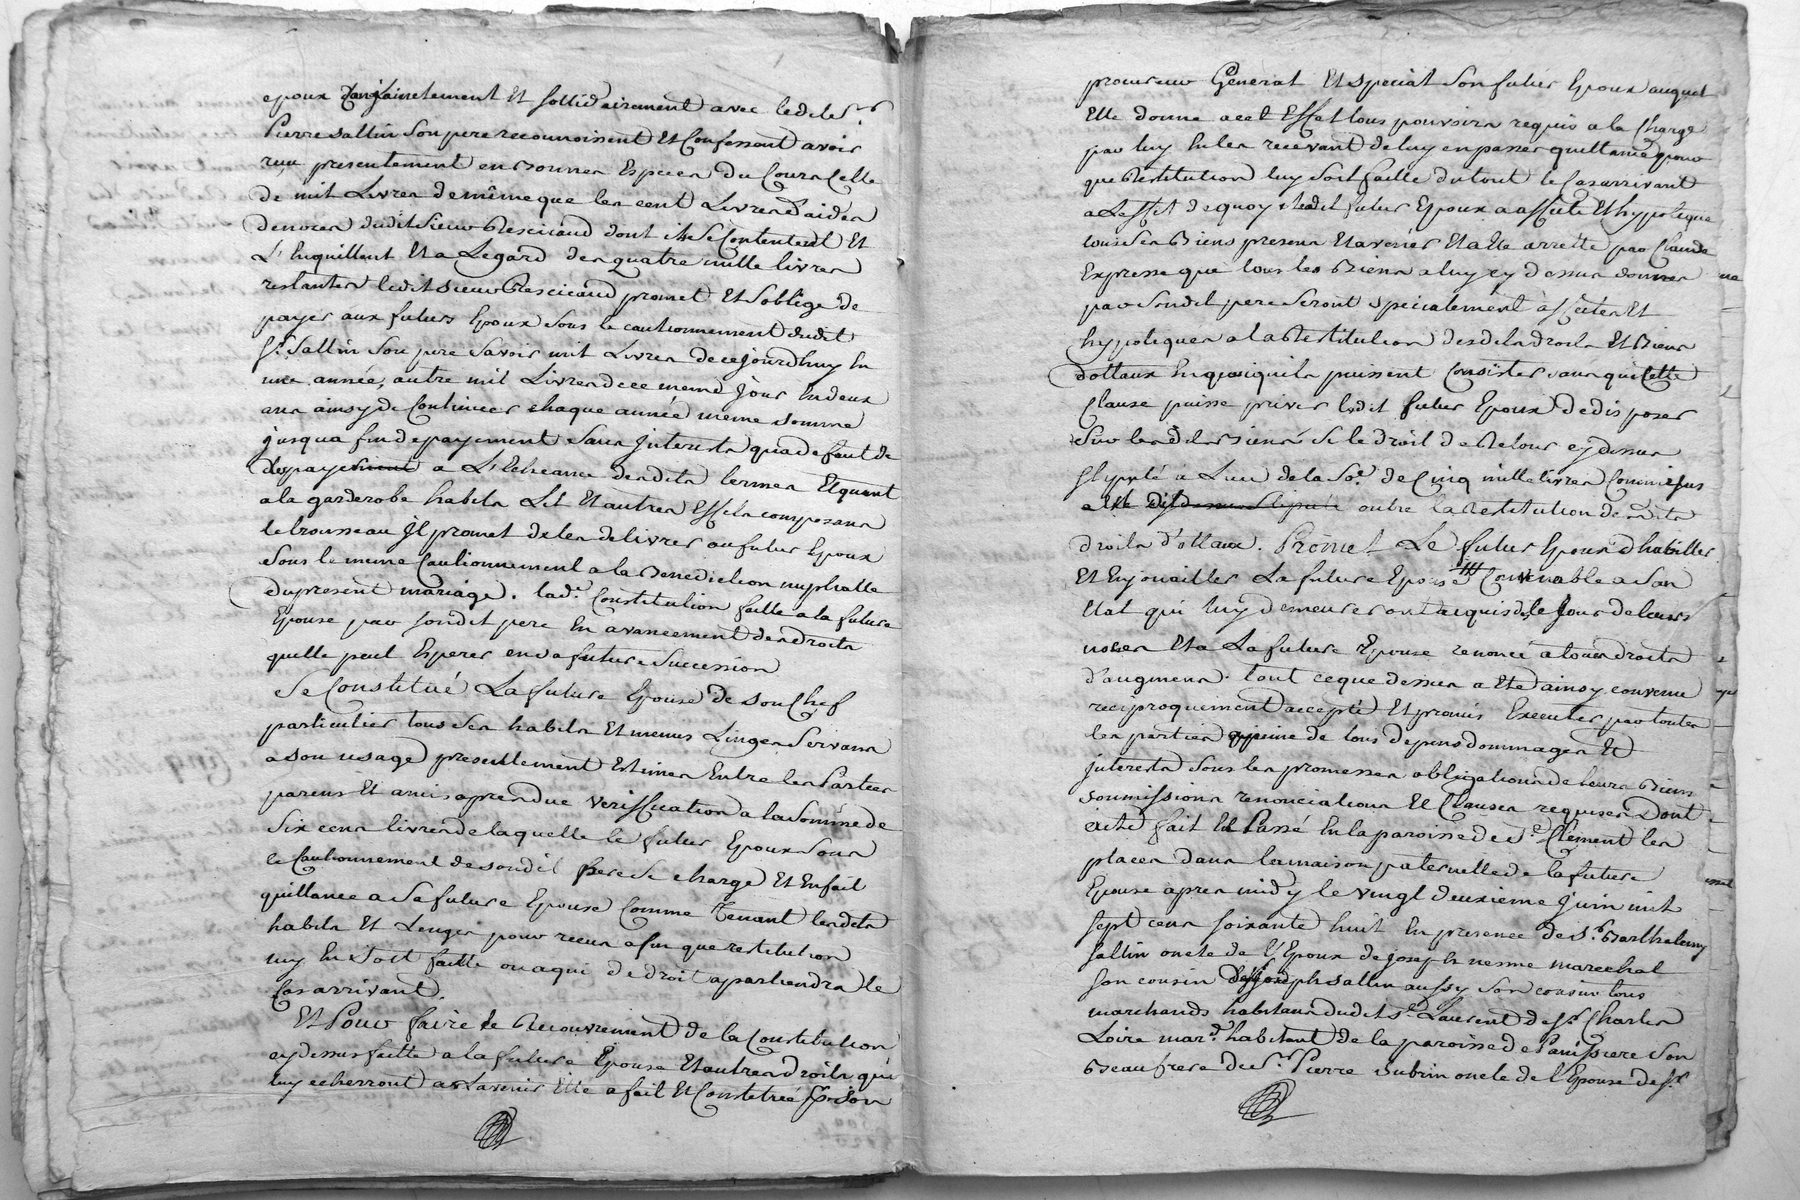 epoux Conjointement Et sollidairement avec ledit S.r
Pierre sallin Son pere reconnoissent Et Confessent avoir
reçu presentement en Bonnes Especes du Cours Celle
de mil Livres de même que les cent Livres d'aides
denoces dudit Sieur Besciaud dont ils se Contentent Et
L'En quittent Et a Legard des quatre mille livres
restantes ledit sieur Besciaud promet Et Soblige de
payer aux futurs Epoux Sous le cautionnement dudit
S.r Sallin Son pere Savoir mil Livres de cejourdhuy En
une année, autre mil Livres de ce meme Jour En deux
ans ainsy de Continuer chaque année meme somme
jusqua fin de payement Sans Interests qua defaut de
payement a L'Echeance desdits termes Et quant
a la garderobe habits Lit Et autres Effets composans
le trousseau Il promet de les delivrer au futur Epoux
Sous le meme Cautionnement a la Benediction nuptialle
du present mariage. lad.e Constitution faitte a la future
Epouse par sondit pere En avancement des droits
quelle peut Esperer en sa future Succession
Se Constitué La future Epouse de son Chef
particulier tous Ses habits Et menus Linges Servans
a son usage presentement Estimes Entre les Parties
parens Et amis apres due veriffication a la Somme de
Six cens livres de laquelle le futur Epoux Sous
le Cautionnement de sondit pere Se charge Et En fait
quittance a Sa future Epouse Comme Tenant lesdits
habits Et Linges pour reçus afin que restitution
luy En Soit faitte ou a qui de droit apartiendra le
Cas arrivant.
Et Pour faire le Recouvrement de la Constitution
cy dessus faitte a la future Epouse Et autres droits qui
luy echerront a Lavenir Elle a fait Et Constitué p.r Son
procureur General Et special Son futur Epoux auquel
Elle donne a cet Effet tous pouvoirs requis a la Charge
par luy En les recevant de luy en passer quittance pour
que Restitution luy Soit faitte du tout le Cas arrivant
a Leffet de quoy ledit futur Epoux a affecté Et hypoteque
tous Ses Biens presens Et avenirs Et a Ete arretté par Clause
Expresse que tous les Biens a luy cy dessus donnes
par Sondit pere Seront specialement affectes Et
hypoteques a la Restitution desdits droits Et Biens
dottaux En quoi qu'ils puissent Consister sans que Cette
Clause puisse priver ledit futur Epoux de disposer
Sur lesdits Biens Si le droit de Retour cy dessus
Stipulé a Lieu de la So.e de Cinq mille livres
outre la Restitution desdits
droits d'ottaux. Promet Le futur Epoux d'habiller
Et Enjouailler La future Epouse Convenable a Son
Etat qui luy demeureront acquis des le Jour de leurs
noces Et a La future Epouse renoncé a tous droits
d'augmens. tout ce que dessus a Ete ainsy convenu
reciproquement accepté Et promis Executer par toutes
les parties a peine de tous depens dommages Et
Interests Sous les promesses obligations de leurs Biens
soumissions renonciations Et Clauses requises Dont
acte fait Et Passé En la paroisse de S.t Clement les
places dans la maison paternelle de la future
Epouse apres midy le vingt deuxieme Juin mil
Sept cens soixante huit En presence de S.r Barthelemy
Sallin oncle de l'Epoux de Josef En nesme marechal
Son cousin de Joseph Sallin aussy Son cousin tous
marchands habitans dudit S.t Laurent de S.r Charles
Loire mar.d habitant de la paroisse de Panissiere Son
Beaufrere de S.r Pierre Subrin oncle de l'Epouse de S.r